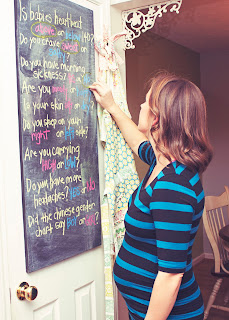 Is babies heartbeat
above or below 140?
Do you crave sweet or
salty?
Do you have morning
sickness?
Are you
or
Is your skin or
Do you sleep on your
right or left side?
Are you carrying
HIGH or LOW?
Do you have more
headaches? YES or NO
Did the chinese gender
chart say BOY or